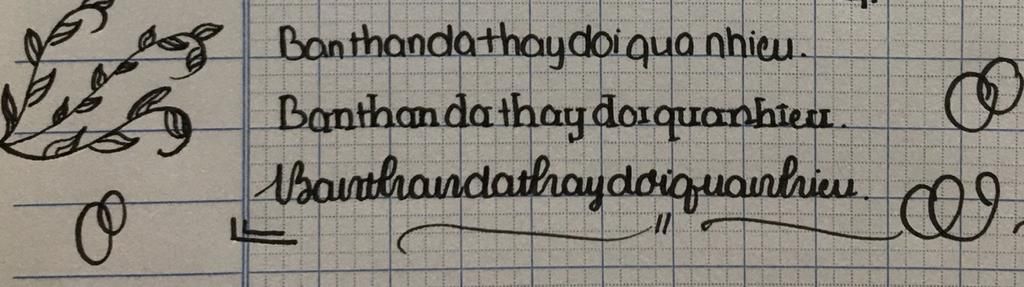 Banthandathaydoiqua nhieu.
Banthandathaydoiquanhieu.
Banthandathaydoiquanhieu.